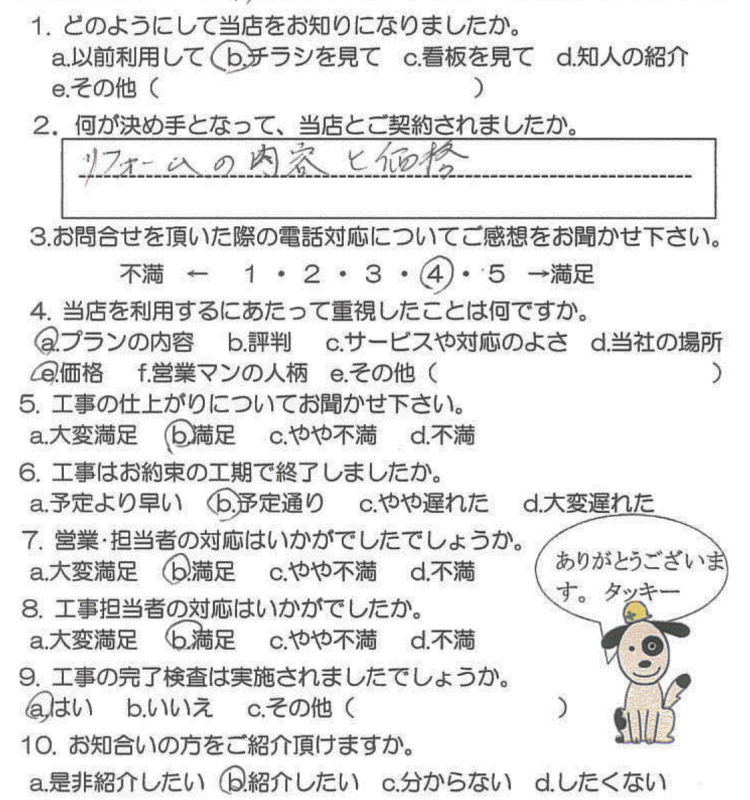 1. どのようにして当店をお知りになりましたか。
a.以前利用して b.チラシを見て c.看板を見て d.知人の紹介
e.その他（ ）
2. 何が決め手となって、当店とご契約されましたか。
リフォームの内容と価格
3.お問合せを頂いた際の電話対応についてご感想をお聞かせ下さい。
不満 ← 1・2・3・4・5 →満足
4. 当店を利用するにあたって重視したことは何ですか。
a.プランの内容 b.評判 c.サービスや対応のよさ d.当社の場所
e.価格 f.営業マンの人柄 e.その他（ ）
5. 工事の仕上がりについてお聞かせ下さい。
a.大変満足 b.満足 c.やや不満 d.不満
6. 工事はお約束の工期で終了しましたか。
a.予定より早い b.予定通り c.やや遅れた d.大変遅れた
7. 営業・担当者の対応はいかがでしたでしょうか。
a.大変満足 b.満足 c.やや不満 d.不満
8. 工事担当者の対応はいかがでしたか。
a.大変満足 b.満足 c.やや不満 d.不満
ありがとうございま
す。 タッキー
9. 工事の完了検査は実施されましたでしょうか。
a.はい b.いいえ c.その他（ ）
10. お知合いの方をご紹介頂けますか。
a.是非紹介したい b.紹介したい c.分からない d.したくない